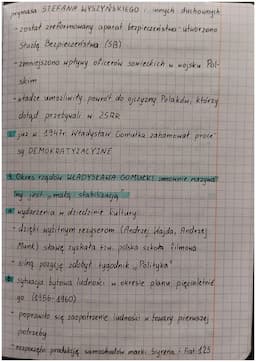 prymasa STEFANA WYSZYŃSKIEGO i innych duchownych
- został zreformowany aparat bezpieczeństwa - utworzono
Służbę Bezpieczeństwa (SB)
- zmniejszono wpływy oficerów sowieckich w wojsku Pol-
skim
- władze umożliwiły powrót do ojczyzny Polaków, którzy
dotąd przebywali w ZSRR
już w 1947r. Władysław Gomułka zahamował proce-
sy DEMOKRATYZACYJNE
4. Okres rządów WŁADYSŁAWA GOMUŁKI umownie nazywa-
my jest "małą stabilizacją"
wydarzenia w dziedzinie kultury:
- dzięki wybitnym reżyserom (Andrzej Wajda, Andrzej
Munk) sławę zyskała tzw. polska szkoła filmowa
- silną pozycję zdobył tygodnik "Polityka"
sytuacja bytowa ludności w okresie planu pięcioletnie-
go (1956-1960)
- poprawiło się zaopatrzenie ludności w towary pierwszej
potrzeby
- rozpoczęto produkcję samochodów marki Syrena i Fiat 125